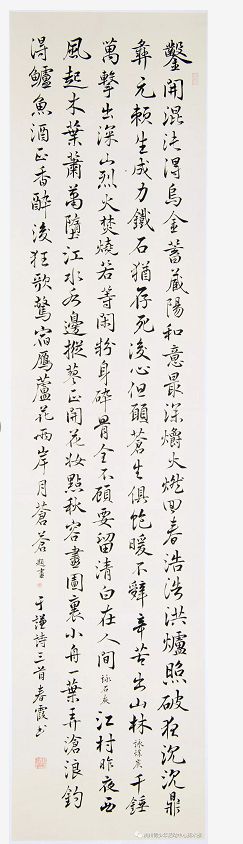 鑿開混沌得烏金蓄藏陽和意最深爝火燃回春浩浩洪爐照破夜沉沉鼎
彝元賴生成力鐵石猶存死後心但願蒼生俱飽暖不辭辛苦出山林 詠煤炭 千錘
萬擊出深山烈火焚燒若等閑粉身碎骨全不顧要留清白在人間 詠石灰 江村昨夜西
風起木葉蕭蕭墮江水水邊摐蓼正開花妝點秋容畫圖裏小舟一葉弄滄浪釣
得鱸魚酒正香醉後狂歌驚宿鴈蘆花兩岸月蒼蒼 題畫 于謙詩三首春霞書